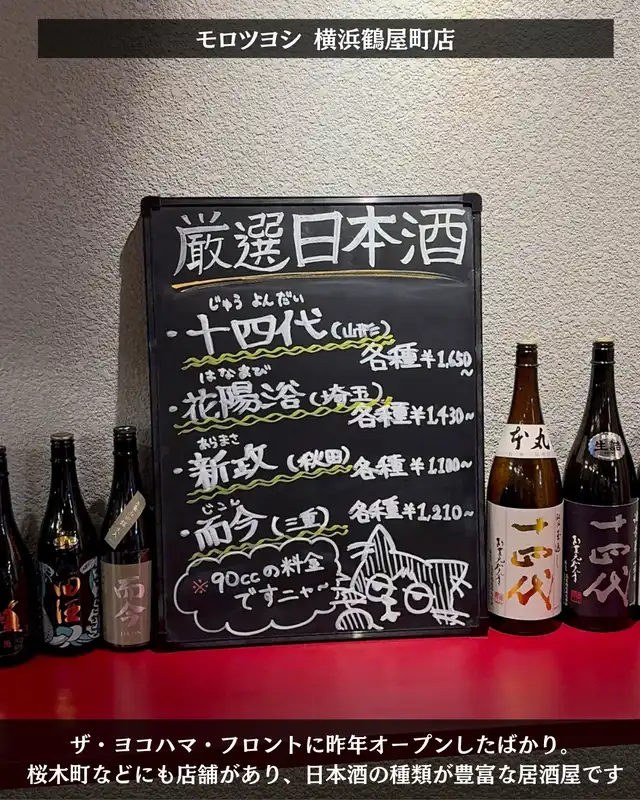 モロツヨシ 横浜鶴屋町店
厳選日本酒
じゅう よんだい
・十四代(山形)
各種¥1,650~
はなあび
・花陽浴(埼玉)
各種¥1,430~
あらまさ
・新政(秋田)各種¥1,100~
じこん
・而今(三重)各種¥1,210~
※90ccの料金
ですニャ~
田酒
而今
本丸
十四代
十四代
ザ・ヨコハマ・フロントに昨年オープンしたばかり。
桜木町などにも店舗があり、日本酒の種類が豊富な居酒屋です